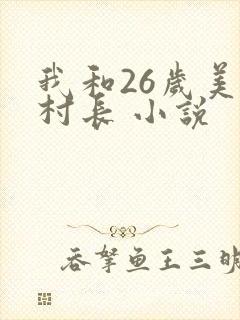 我和26歲美
村長 小説
吞拏鱼王三